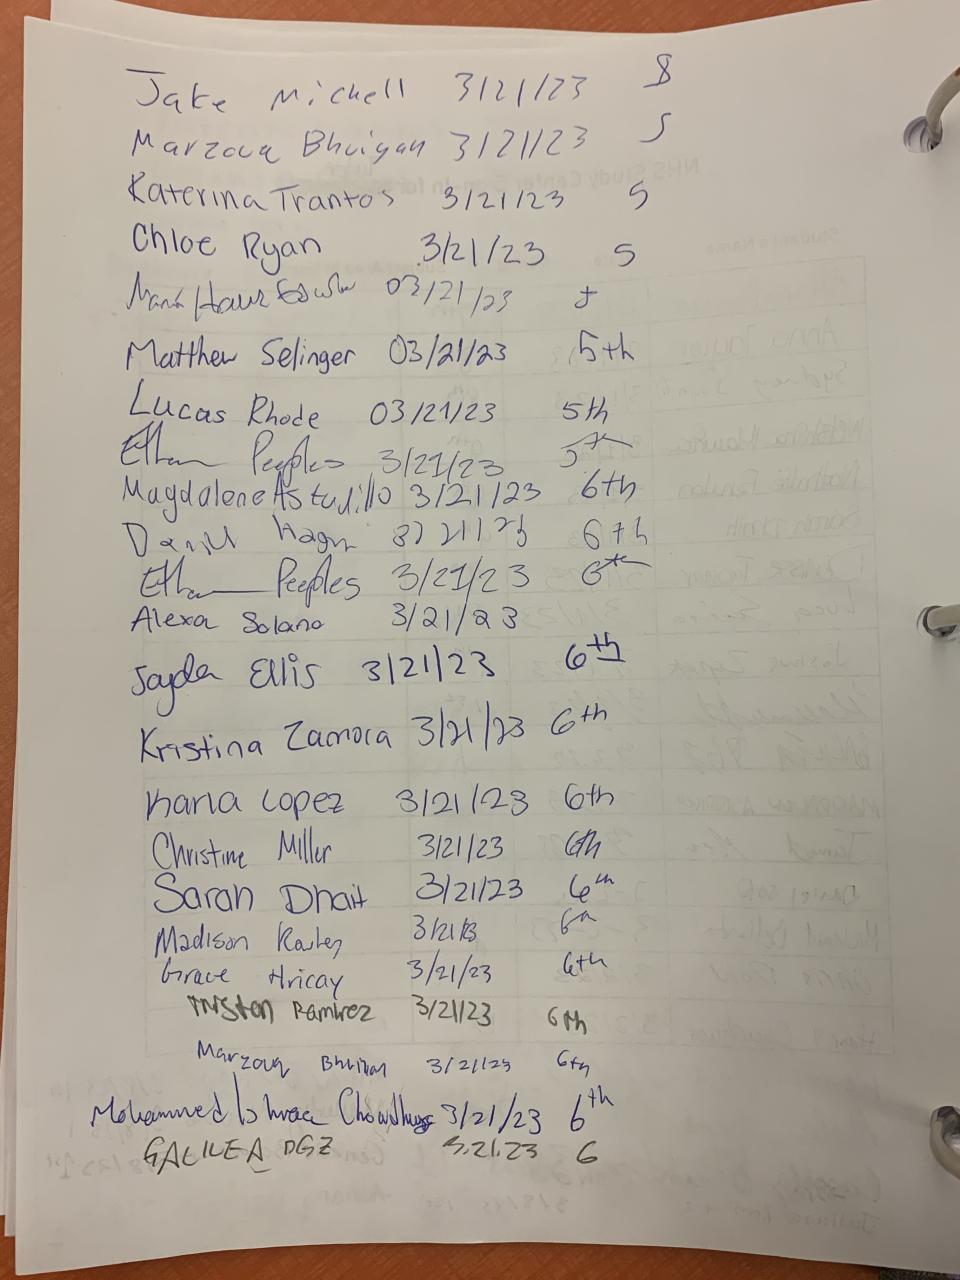 Jake Michell 3/21/23 8
Marzouq Bhuiyan 3/21/23 5
Katerina Trantos 3/21/23 5
Chloe Ryan 3/21/23 5
03/21/23 5
Matthew Selinger 03/21/23 5th
Lucas Rhode 03/21/23 5th
Ethan Peeples 3/21/23 5th
Magdalene Astudillo 3/21/23 6th
Daniel Hagn 3/21/23 6th
Ethan Peeples 3/21/23 6th
Alexa Solano 3/21/23
Jayda Ellis 3/21/23 6th
Kristina Zamora 3/21/23 6th
Karla Lopez 3/21/23 6th
Christine Miller 3/21/23 6th
Sarah Dhait 3/21/23 6th
Madison 3/21/23 6th
Grace Hricay 3/21/23 6th
Tristan Ramirez 3/21/23 6th
Marzouq Bhuiyan 3/21/23 6th
Mohammed Ishraq Chowdhury 3/21/23 6th
GALILEA DGZ 3.21.23 6